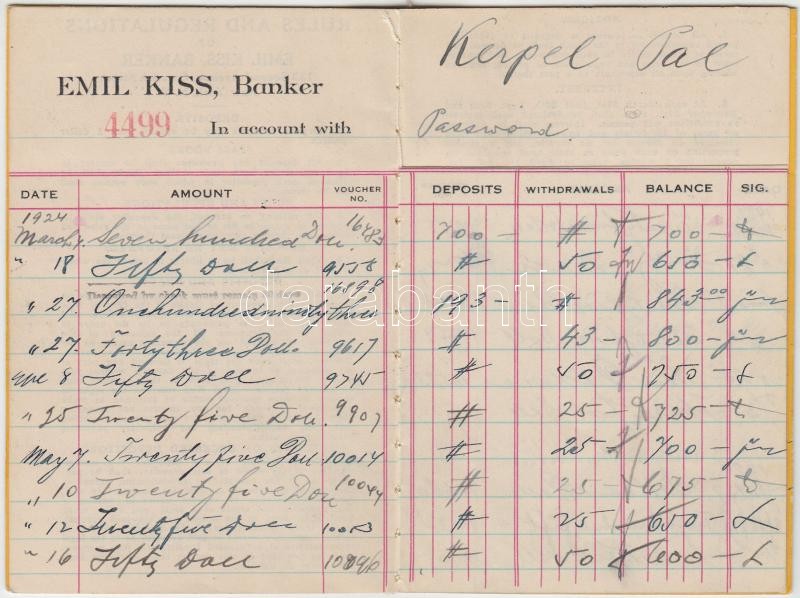 EMIL KISS, Banker
4499 In account with
Kerpel Pal
Password
DATE AMOUNT VOUCHER NO. DEPOSITS WITHDRAWALS BALANCE SIG.
1924
March 7. Seven hundred Doll. 16483 700 — # 700 —
" 18 Fifty Doll 9558 # 50 650 —
" 27. One hundred ninety three 16898 193 — # 843.00
" 27. Forty three Doll. 9617 # 43 — 800 —
8 Fifty Doll 9745 # 50 750 —
" 25 Twenty five Doll. 9907 # 25 — 725 —
May 7. Twenty five Doll 10014 # 25 — 700 —
" 10 Twenty five Doll 10044 # 25 — 675 —
" 12 Twenty five Doll 10053 # 25 — 650 —
" 16 Fifty Doll # 50 600 —
darabanth